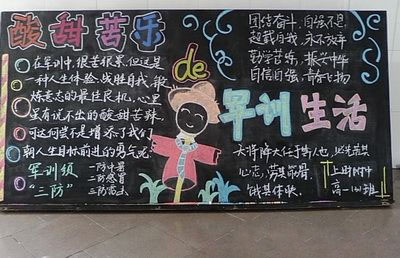 酸甜苦乐
de
军训生活
在军训中,很苦很累,但这是
一种人生体验,战胜自我,锻
炼意志的最佳良机,心里
虽有说不出的酸甜苦辣,
可这何尝不是增添了我们
朝人生目标前进的勇气呢。
军训须
“三防”
一防中暑
二防感冒
三防雷击
团结奋斗,自强不息
超越自我,永不放弃
勤学苦练,振兴中华
自信自强,青春飞扬
大将降大任于斯人也,必先苦其
心志,劳其筋骨,
饿其体肤
高一
班